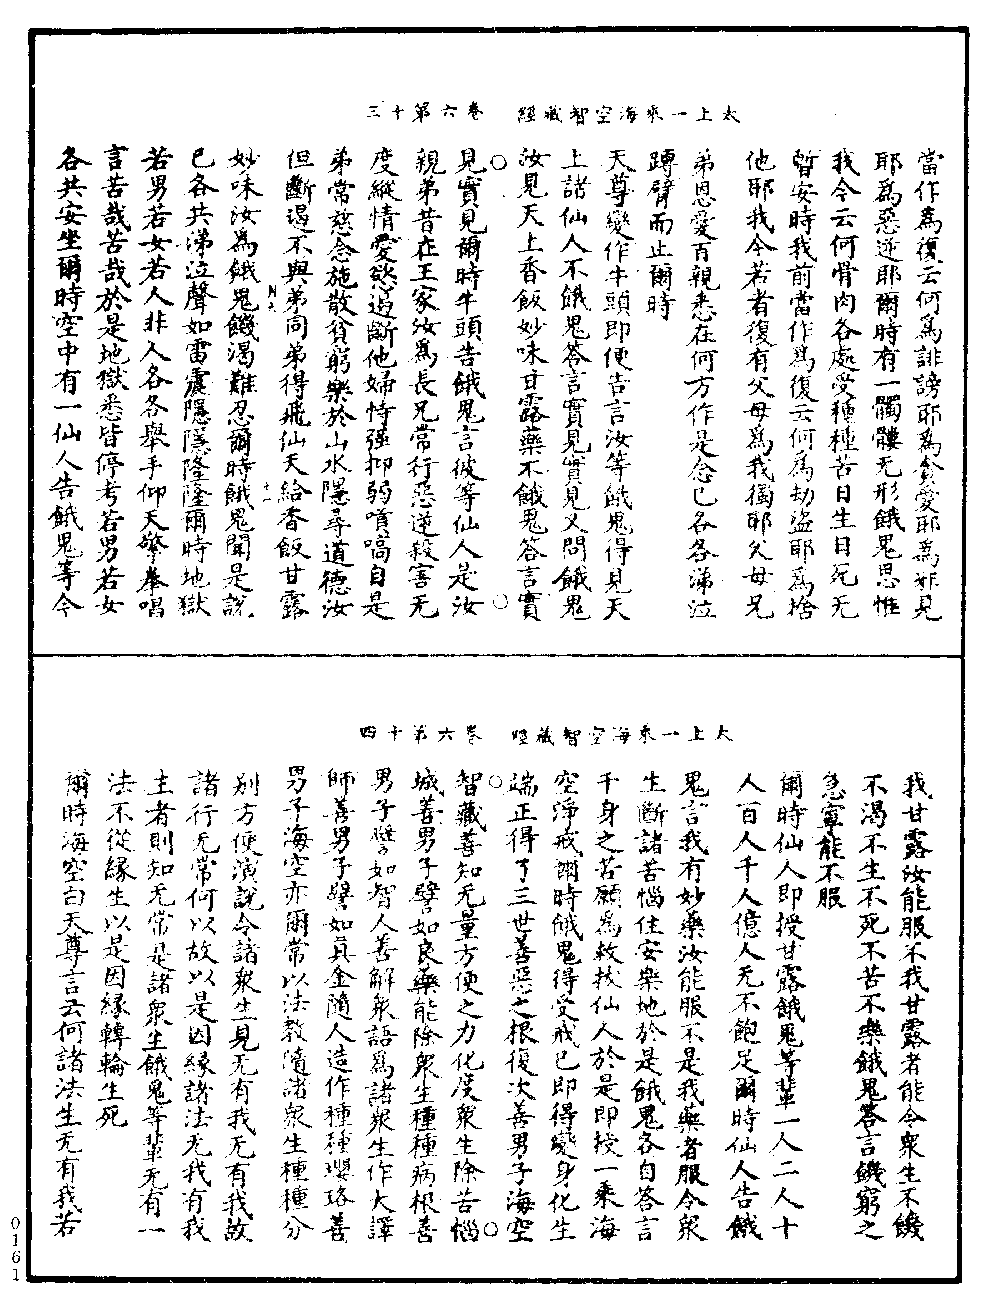 太上一乘海空智藏經　卷六第十三
當作為復云何為誹謗耶為貪愛耶為邪見
耶為惡逆耶爾時有一髑髏无形餓鬼思惟
我今云何骨肉各處受種種苦日生日死无
暫安時我前當作為復云何為劫盜耶為捨
他耶我今若者復有父母為我獨耶父母兄
弟恩愛百親悉在何方作是念已各各涕泣
蹲臂而止爾時
天尊變作牛頭即便告言汝等餓鬼得見天
上諸仙人不餓鬼答言實見實見又問餓鬼
汝見天上香飯妙味甘露藥不餓鬼答言實
見實見爾時牛頭告餓鬼言彼等仙人是汝
親弟昔在王家汝為長兄常行惡逆殺害无
度縱情愛慾過斷他婦恃强抑弱嗔嗃自是
弟常慈念施散貧窮樂於山水隱尋道德汝
但斷遏不與弟同弟得飛仙天給香飯甘露
妙味汝為餓鬼饑渴難忍爾時餓鬼聞是說
已各共涕泣聲如雷震隱隱隆隆爾時地獄
若男若女若人非人各各舉手仰天擎拳唱
言苦哉苦哉於是地獄悉皆停考若男若女
各共安坐爾時空中有一仙人告餓鬼等今
太上一乘海空智藏經　卷六第十四
我甘露汝能服不我甘露者能令衆生不饑
不渴不生不死不苦不樂餓鬼答言饑窮之
急寧能不服
爾時仙人即授甘露餓鬼等輩一人二人十
人百人千人億人无不飽足爾時仙人告餓
鬼言我有妙藥汝能服不是我藥者服令衆
生斷諸苦惱住安樂地於是餓鬼各自答言
千身之苦願為救拔仙人於是即授一乘海
空淨戒爾時餓鬼得受戒已即得變身化生
端正得了三世善惡之根復次善男子海空
智藏善知无量方便之力化度衆生除苦惱
城善男子譬如良藥能除衆生種種病根善
男子譬如智人善解衆語為諸衆生作大譯
師善男子譬如真金隨人造作種種瓔珞善
男子海空亦爾常以法教隨諸衆生種種分
别方便演說令諸衆生見无有我无有我故
諸行无常何以故以是因緣諸法无我有我
主者則知无常是諸衆生餓鬼等輩无有一
法不從緣生以是因緣轉輪生死
爾時海空白天尊言云何諸法生无有我若
0161